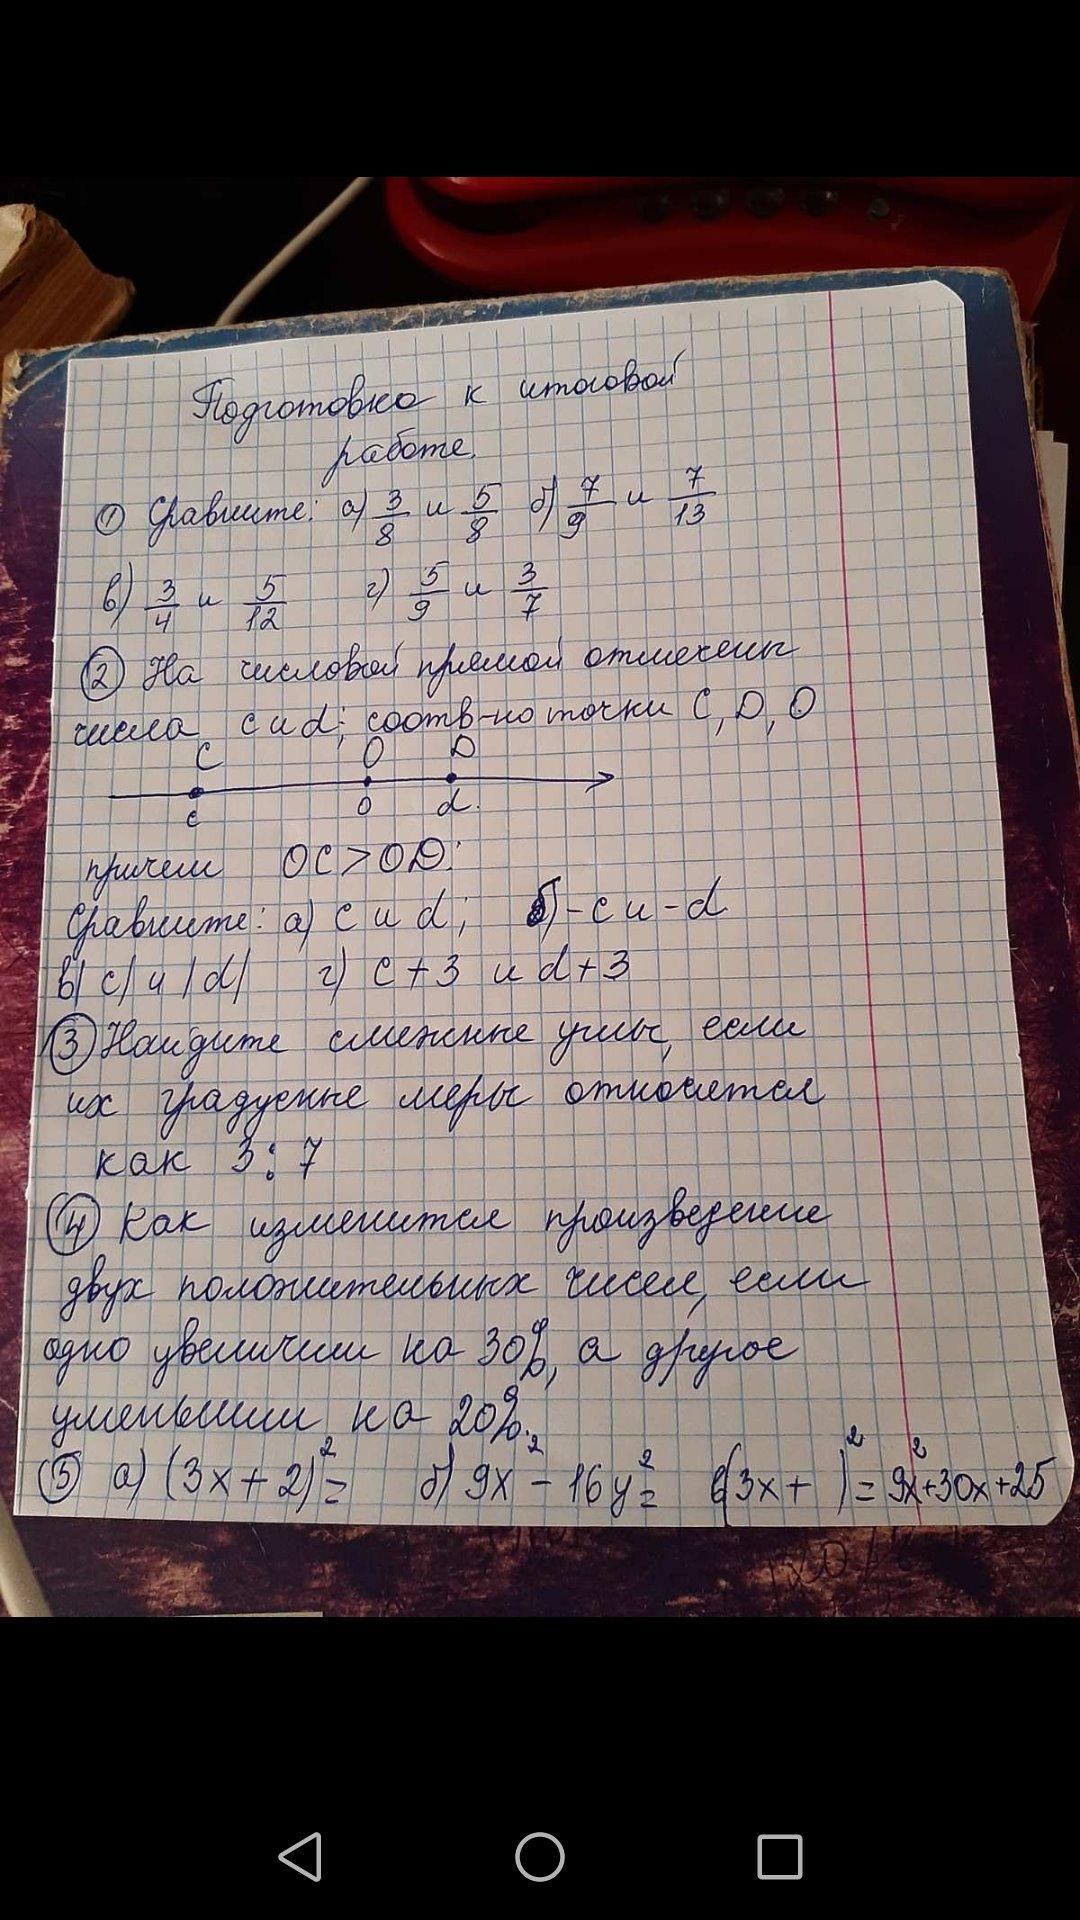 Подготовка к итоговой
работе.
① Сравните: а) 3/8 и 5/8 б) 7/9 и 7/13
в) 3/4 и 5/12 г) 5/9 и 3/7
② На числовой прямой отмечены
числа c и d; соотв-но точки C, D, O
C O D
c 0 d.
причем OC > OD.
Сравните: а) c и d; б) -c и -d
в) |c| и |d| г) c + 3 и d + 3
③ Найдите смежные углы, если
их градусные меры относятся
как 3 : 7
④ Как изменится произведение
двух положительных чисел, если
одно увеличим на 30%, а другое
уменьшим на 20%.
⑤ а) (3x + 2)² = б) 9x² - 16y² = в) (3x + )² = 9x² + 30x + 25